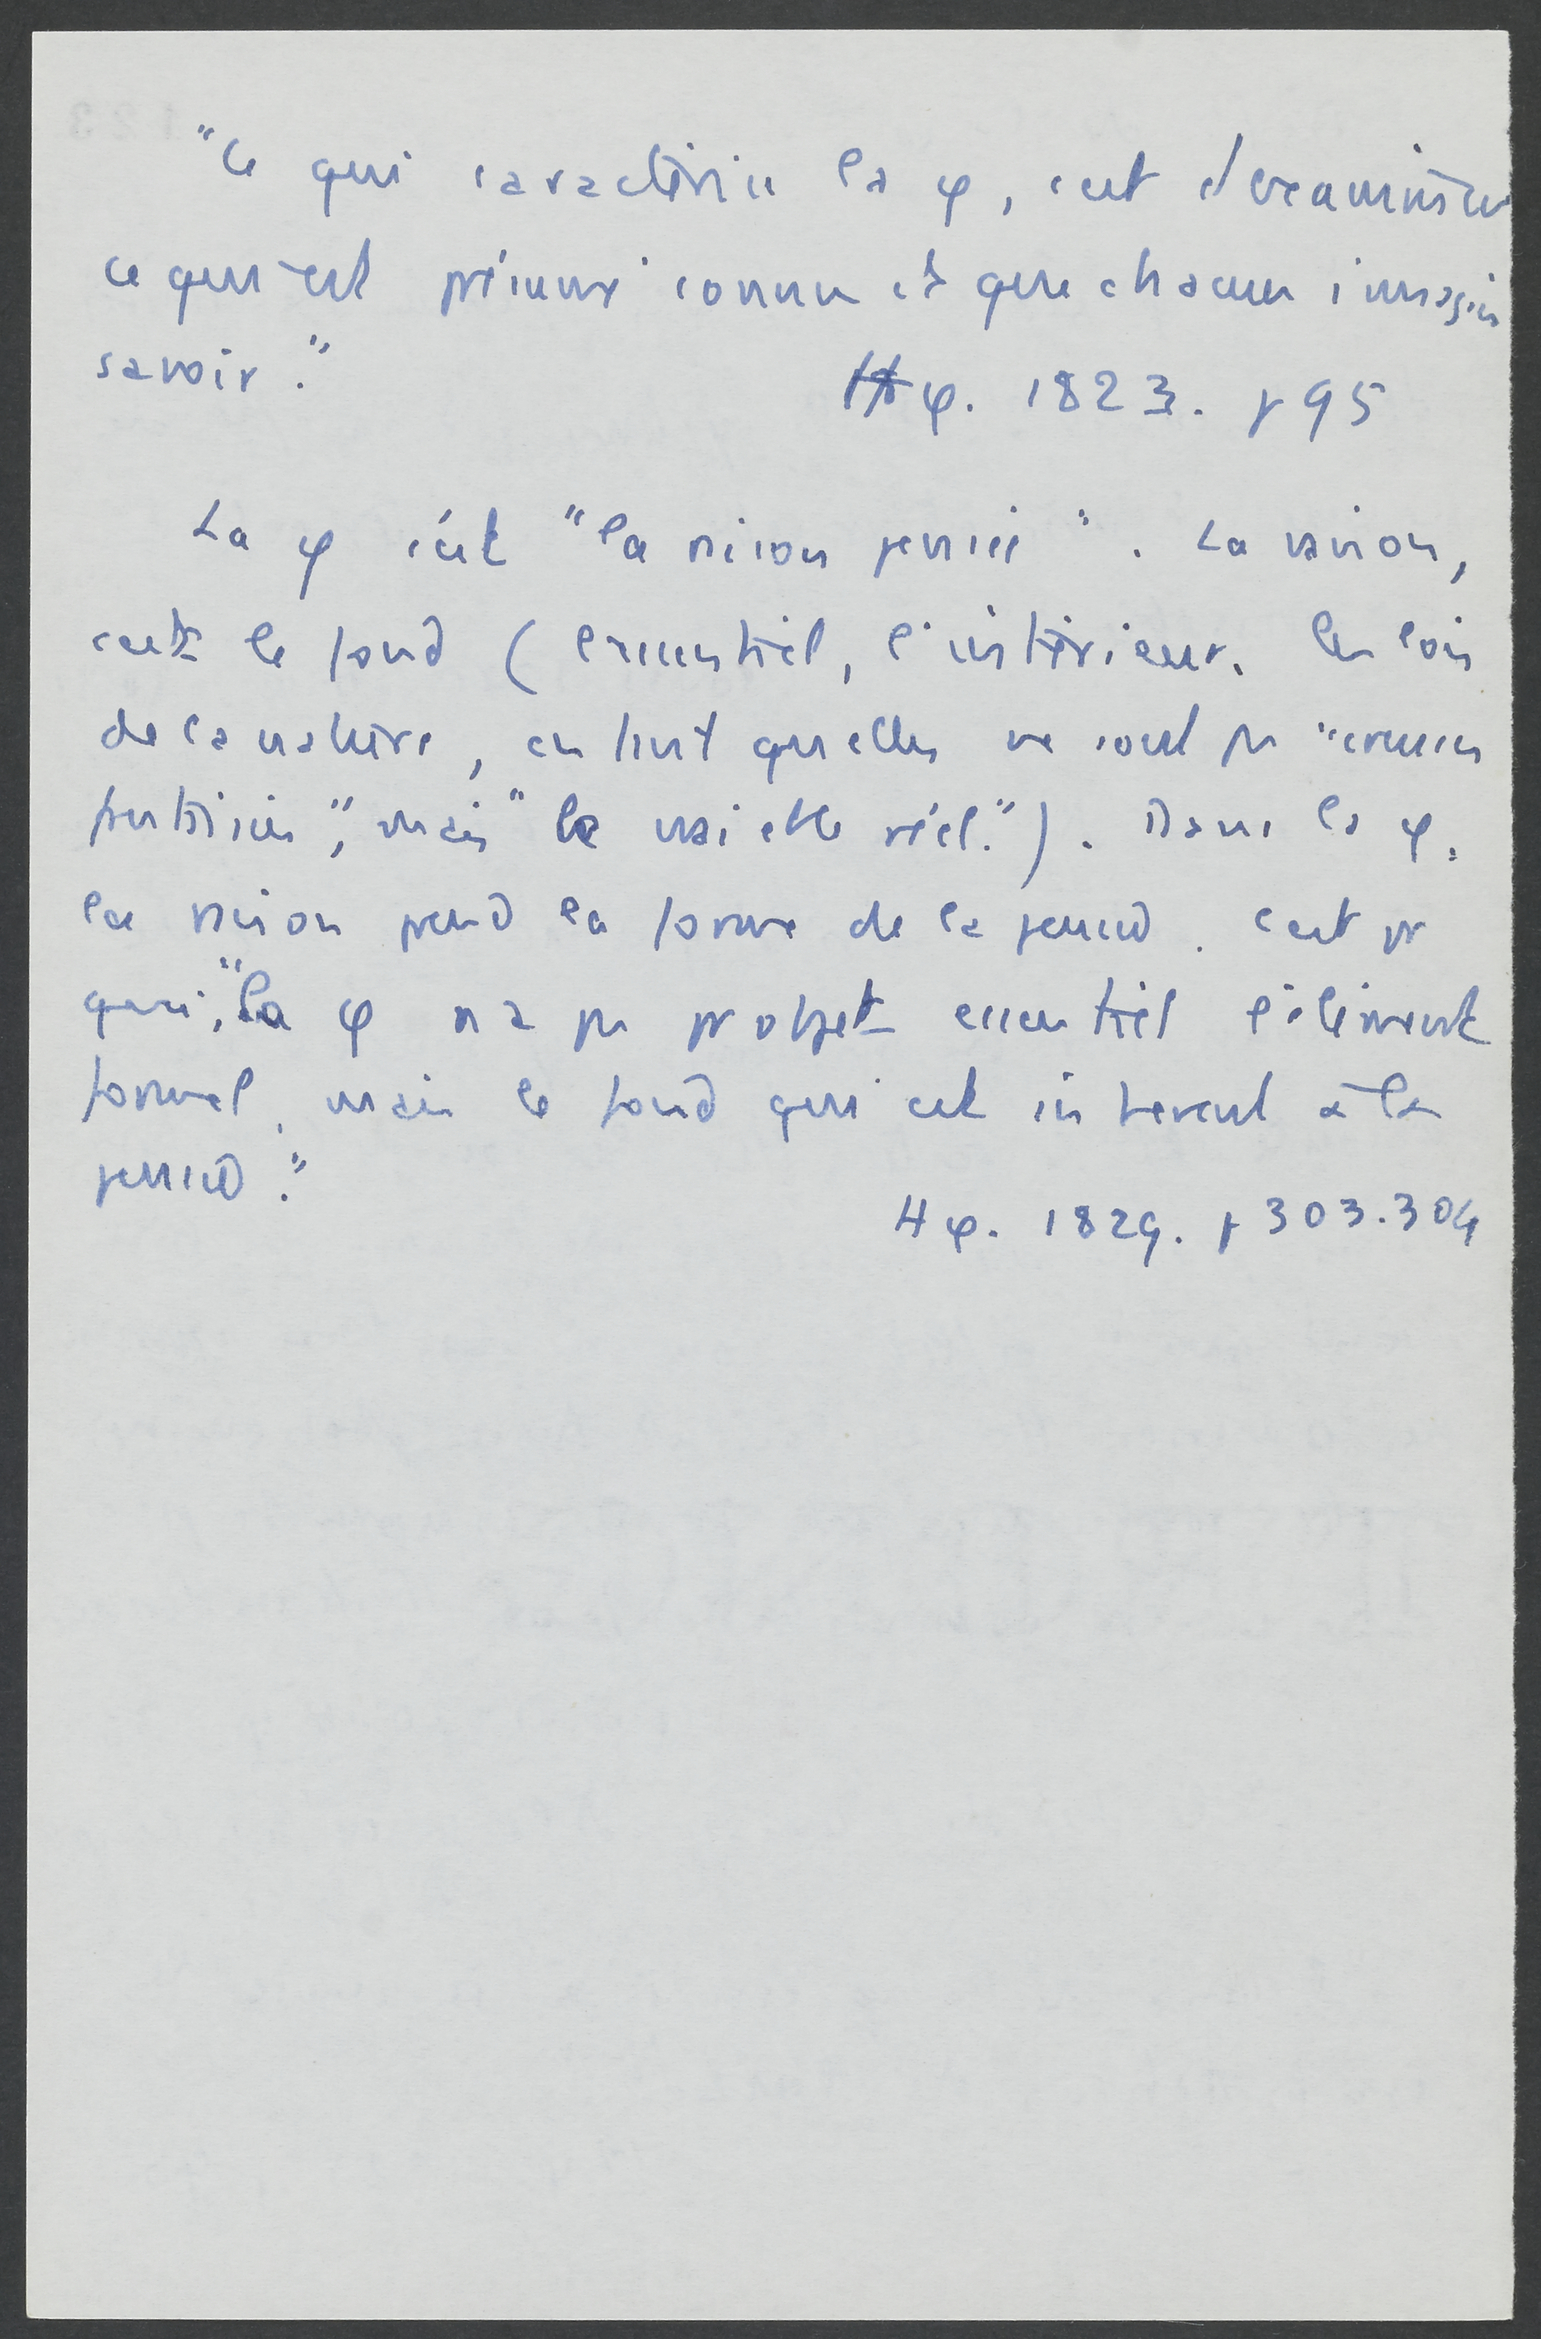 "Ce qui caractérise la φ, c'est d'examiner
ce qui est présumé connu et que chacun imagine
savoir."
Hφ. 1823. p 95
La φ c'est "la raison pensée". La raison,
c'est le fond (l'essentiel, l'intérieur. Les lois
de la nature, en tant qu'elles ne sont pas "
", mais "le vrai et le réel."). Dans la φ.
la raison prend la forme de la pensée. C'est pr
quoi, "la φ n'a pas pr objet essentiel l'élément
formel, mais le fond qui est inhérent à la
pensée."
Hφ. 1829. p 303.304